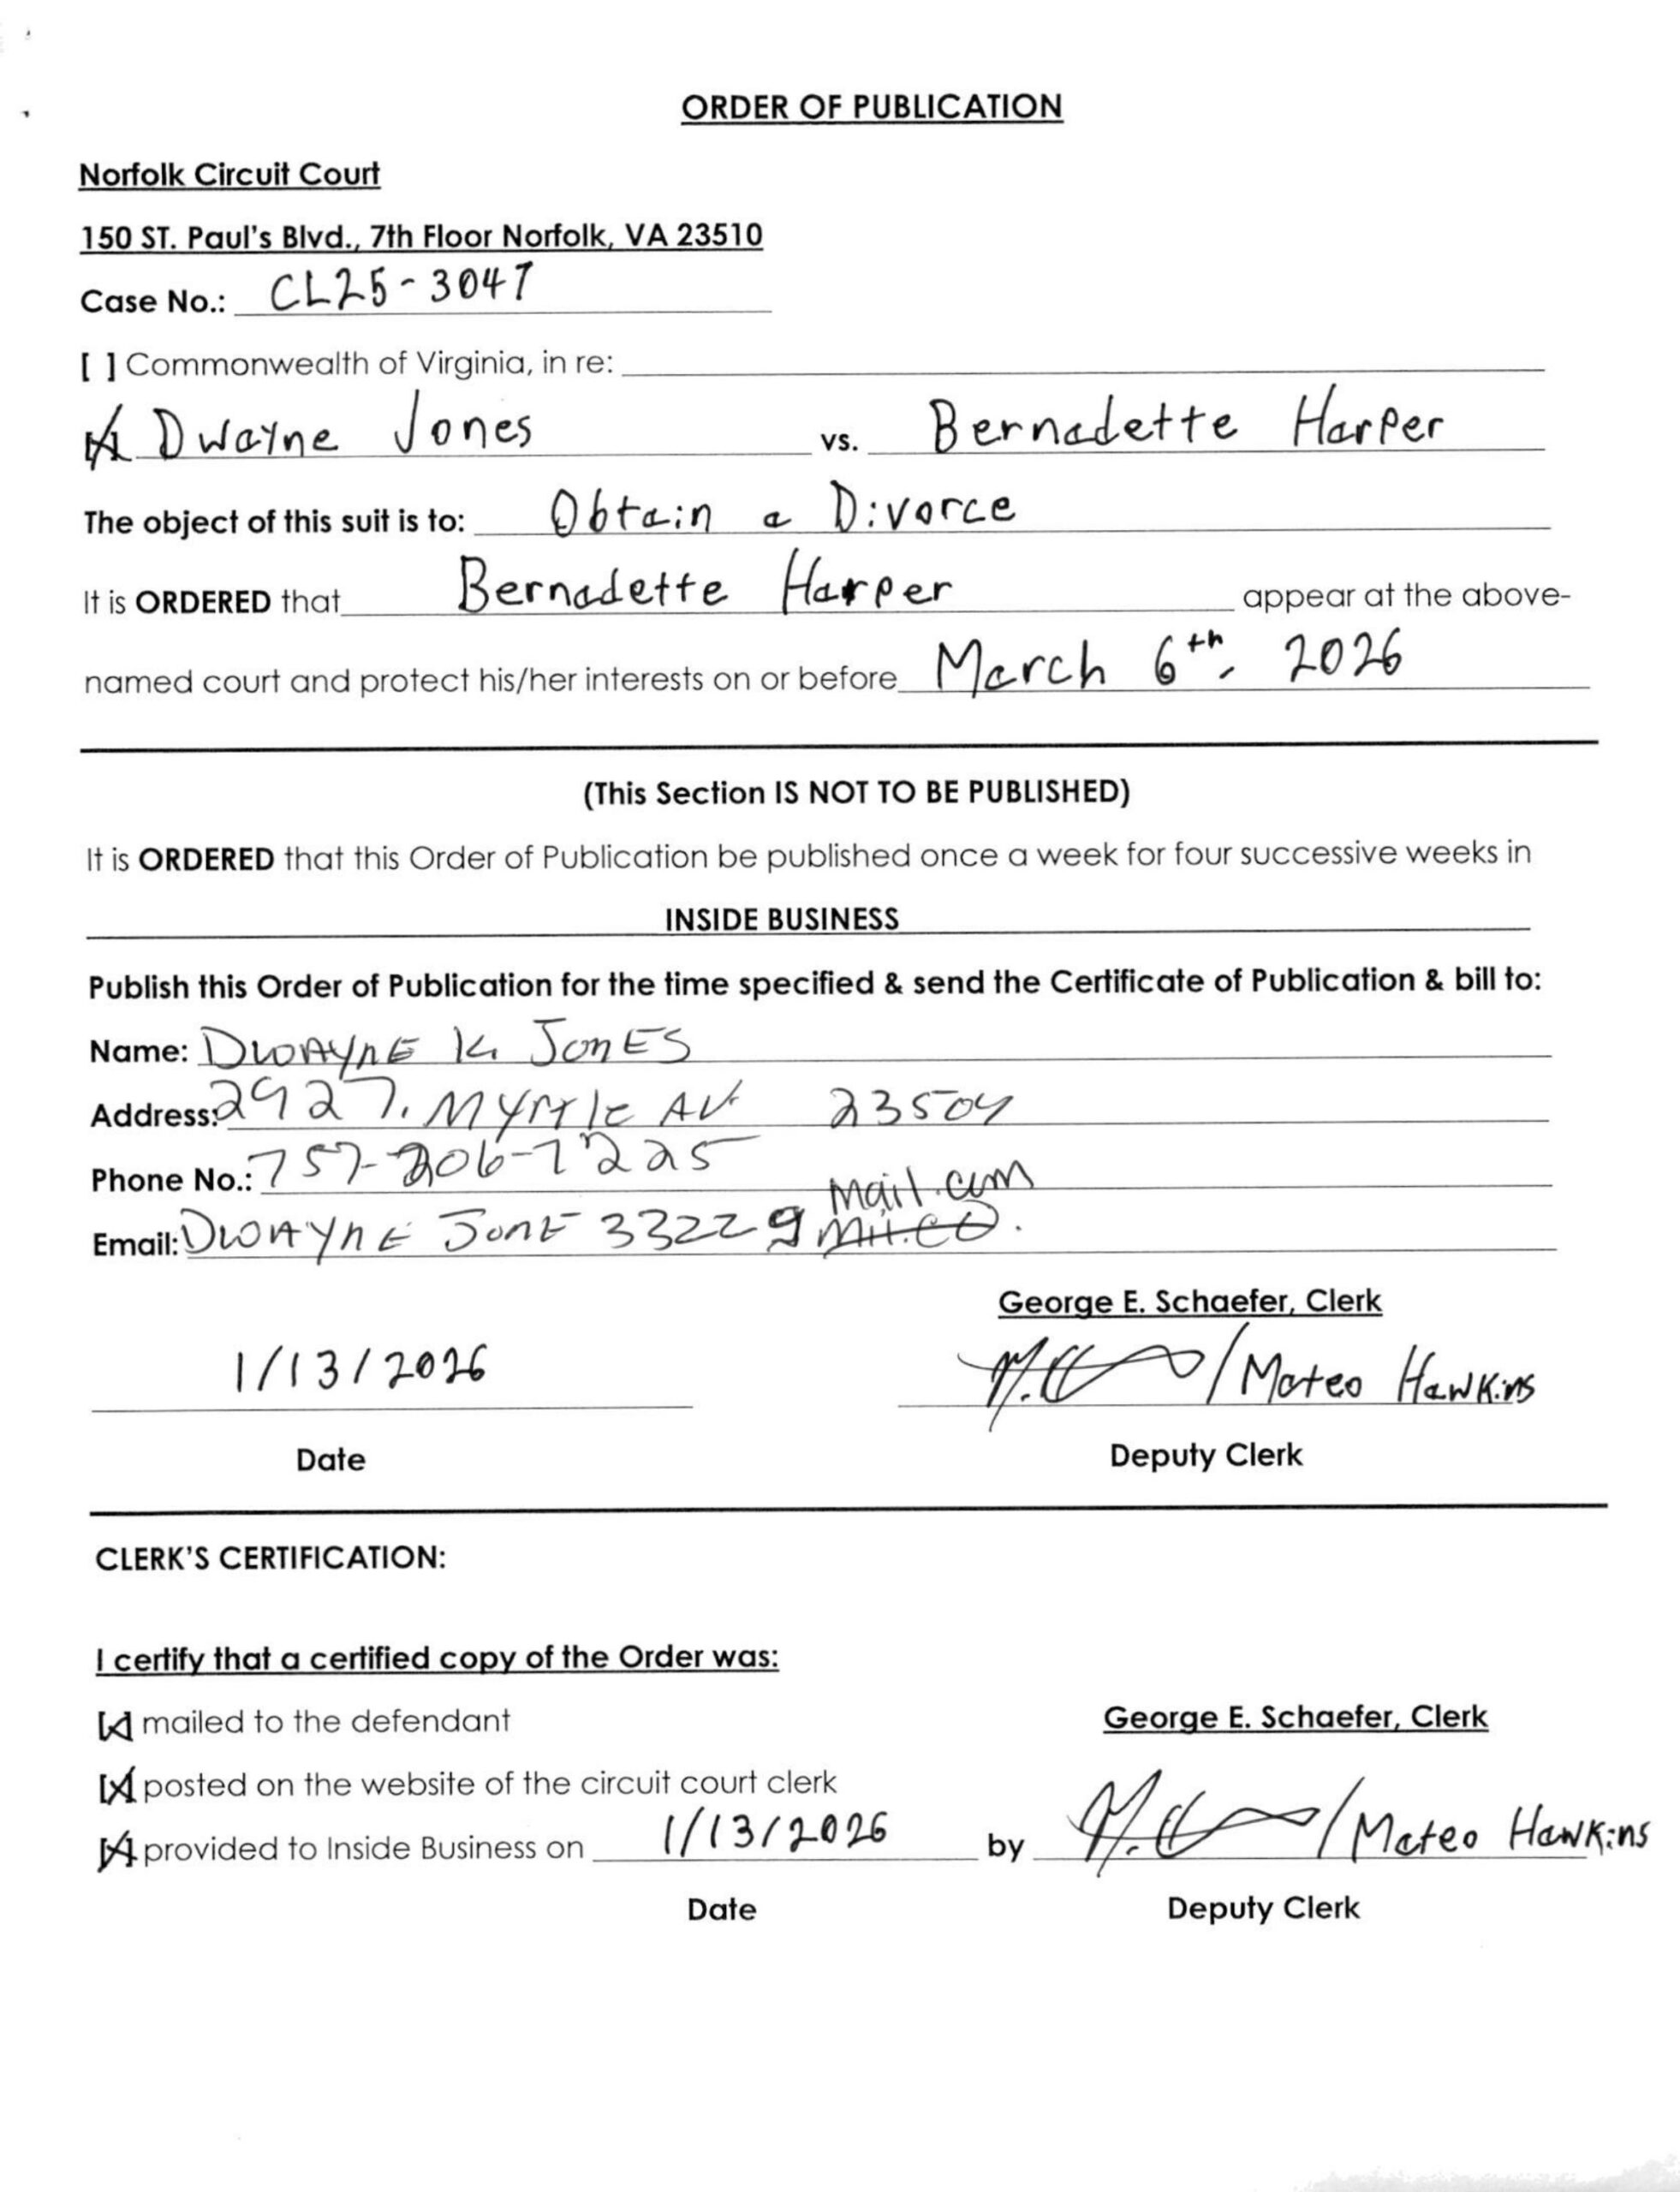 ORDER OF PUBLICATION
Norfolk Circuit Court
150 ST. Paul's Blvd., 7th Floor Norfolk, VA 23510
Case No.: CL25-3047
[ ] Commonwealth of Virginia, in re:
[X] Dwayne Jones vs. Bernadette Harper
The object of this suit is to: Obtain a Divorce
It is ORDERED that Bernadette Harper appear at the above-
named court and protect his/her interests on or before March 6th, 2026
(This Section IS NOT TO BE PUBLISHED)
It is ORDERED that this Order of Publication be published once a week for four successive weeks in
INSIDE BUSINESS
Publish this Order of Publication for the time specified & send the Certificate of Publication & bill to:
Name: DWAYNE K. JONES
Address: 2927. MYrtle AV. 23504
Phone No.: 757-206-7225
mail.com
Email: DWAYNE JONE 3322 g
George E. Schaefer, Clerk
1/13/2026 / Mateo Hawkins
Date Deputy Clerk
CLERK'S CERTIFICATION:
I certify that a certified copy of the Order was:
[X] mailed to the defendant George E. Schaefer, Clerk
[X] posted on the website of the circuit court clerk
[X] provided to Inside Business on 1/13/2026 by / Mateo Hawkins
Date Deputy Clerk